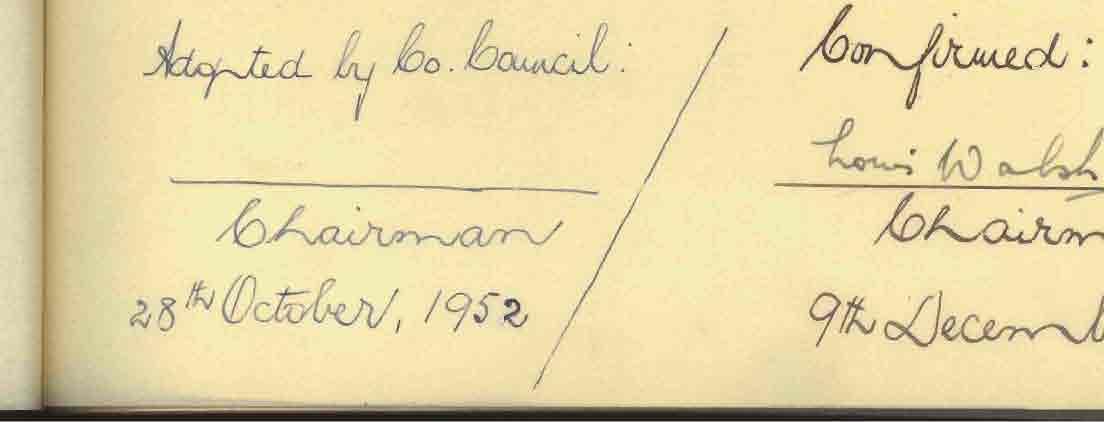 Adopted by Co. Council:
Chairman
28th October, 1952
Confirmed:
Louis Walsh
Chairm
9th Decemb